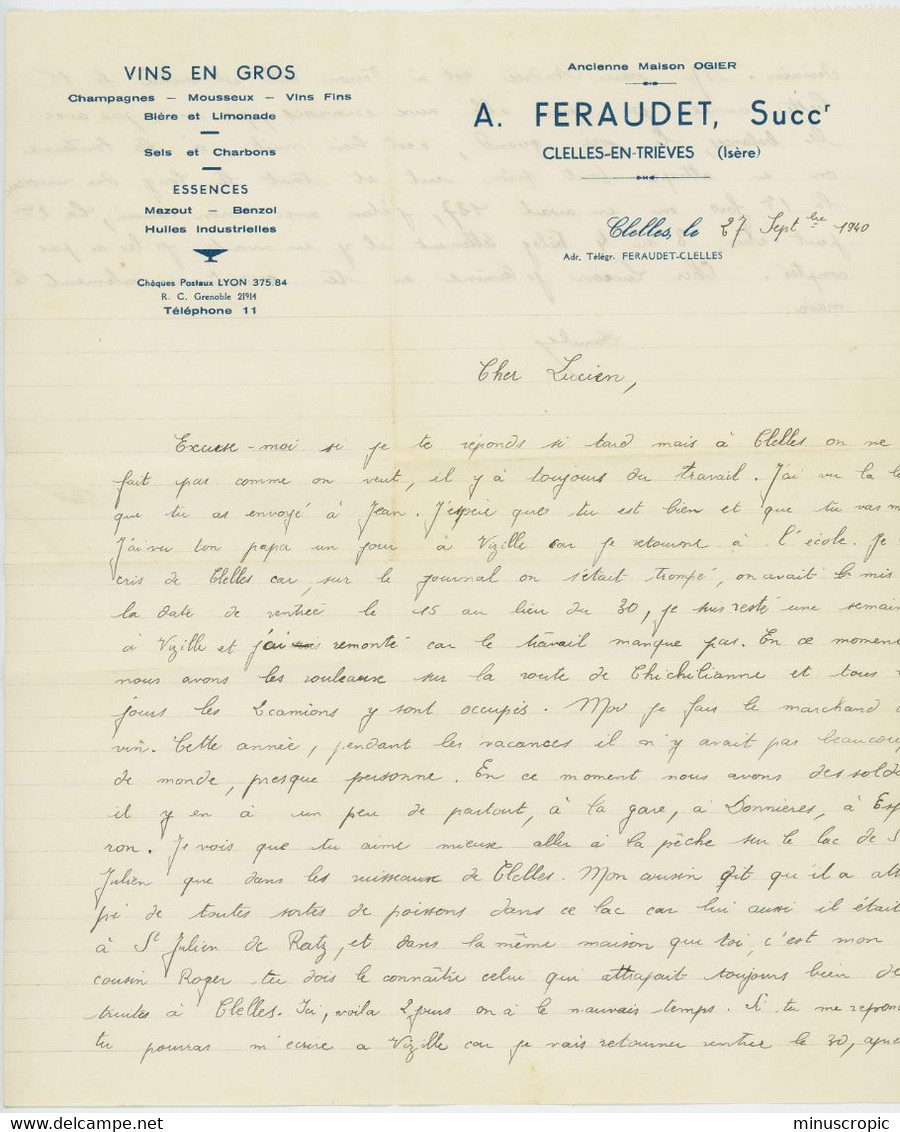 VINS EN GROS
Champagnes — Mousseux — Vins Fins
Bière et Limonade
Sels et Charbons
ESSENCES
Mazout — Benzol
Huiles Industrielles
Chèques Postaux LYON 375.84
R. C. Grenoble 21914
Téléphone 11
Ancienne Maison OGIER
A. FERAUDET, Succr
CLELLES-EN-TRIÈVES (Isère)
Clelles, le 27 Septbre 1940
Adr. Télégr. FERAUDET-CLELLES
Cher Lucien,
Excuse-moi si je te réponds si tard mais à Clelles on ne
fait pas comme on veut, il y à toujours du travail. J'ai vu la
que tu as envoyé à Jean. J'espère que tu est bien et que tu vas
J'ai vu ton papa un jour à Vizille car je retourne à l'école. Je
cris de Clelles car, sur le journal on s'était trompé, on avait mis
la date de rentrée le 15 au lieu du 30, je suis resté une semain
à Vizille et j'ai remonté car le travail manque pas. En ce momen
nous avons les rouleaux sur la route de Chichilianne et tous
jours les 2 camions y sont occupés. Moi je fais le marchand
vin. Cette année, pendant les vacances il n'y avait pas beaucou
de monde, presque personne. En ce moment nous avons des solda
il y en à un peu de partout, à la gare, à Donnières, à Esp
ron. Je vois que tu aime mieux aller à la pêche sur le lac de S
Julien que dans les ruisseaux de Clelles. Mon cousin dit qu'il a att
pé de toutes sortes de poissons dans ce lac car lui aussi il était
à St Julien de Ratz, et dans la même maison que toi, c'est mon
cousin Roger tu dois le connaître celui qui attrapait toujours bien de
truites à Clelles. Ici, voila 2 jours on à le mauvais temps. Si tu me repon
tu pourras m'ecrire a Vizille car je vais retourner rentrer le 30,
minuscropic